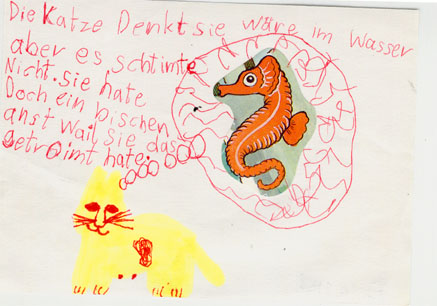 Die Katze Denkt sie wäre im Wasser
aber es schtimte
Nicht. sie hate
Doch ein bischen
anst wail sie das
getroimt hate.